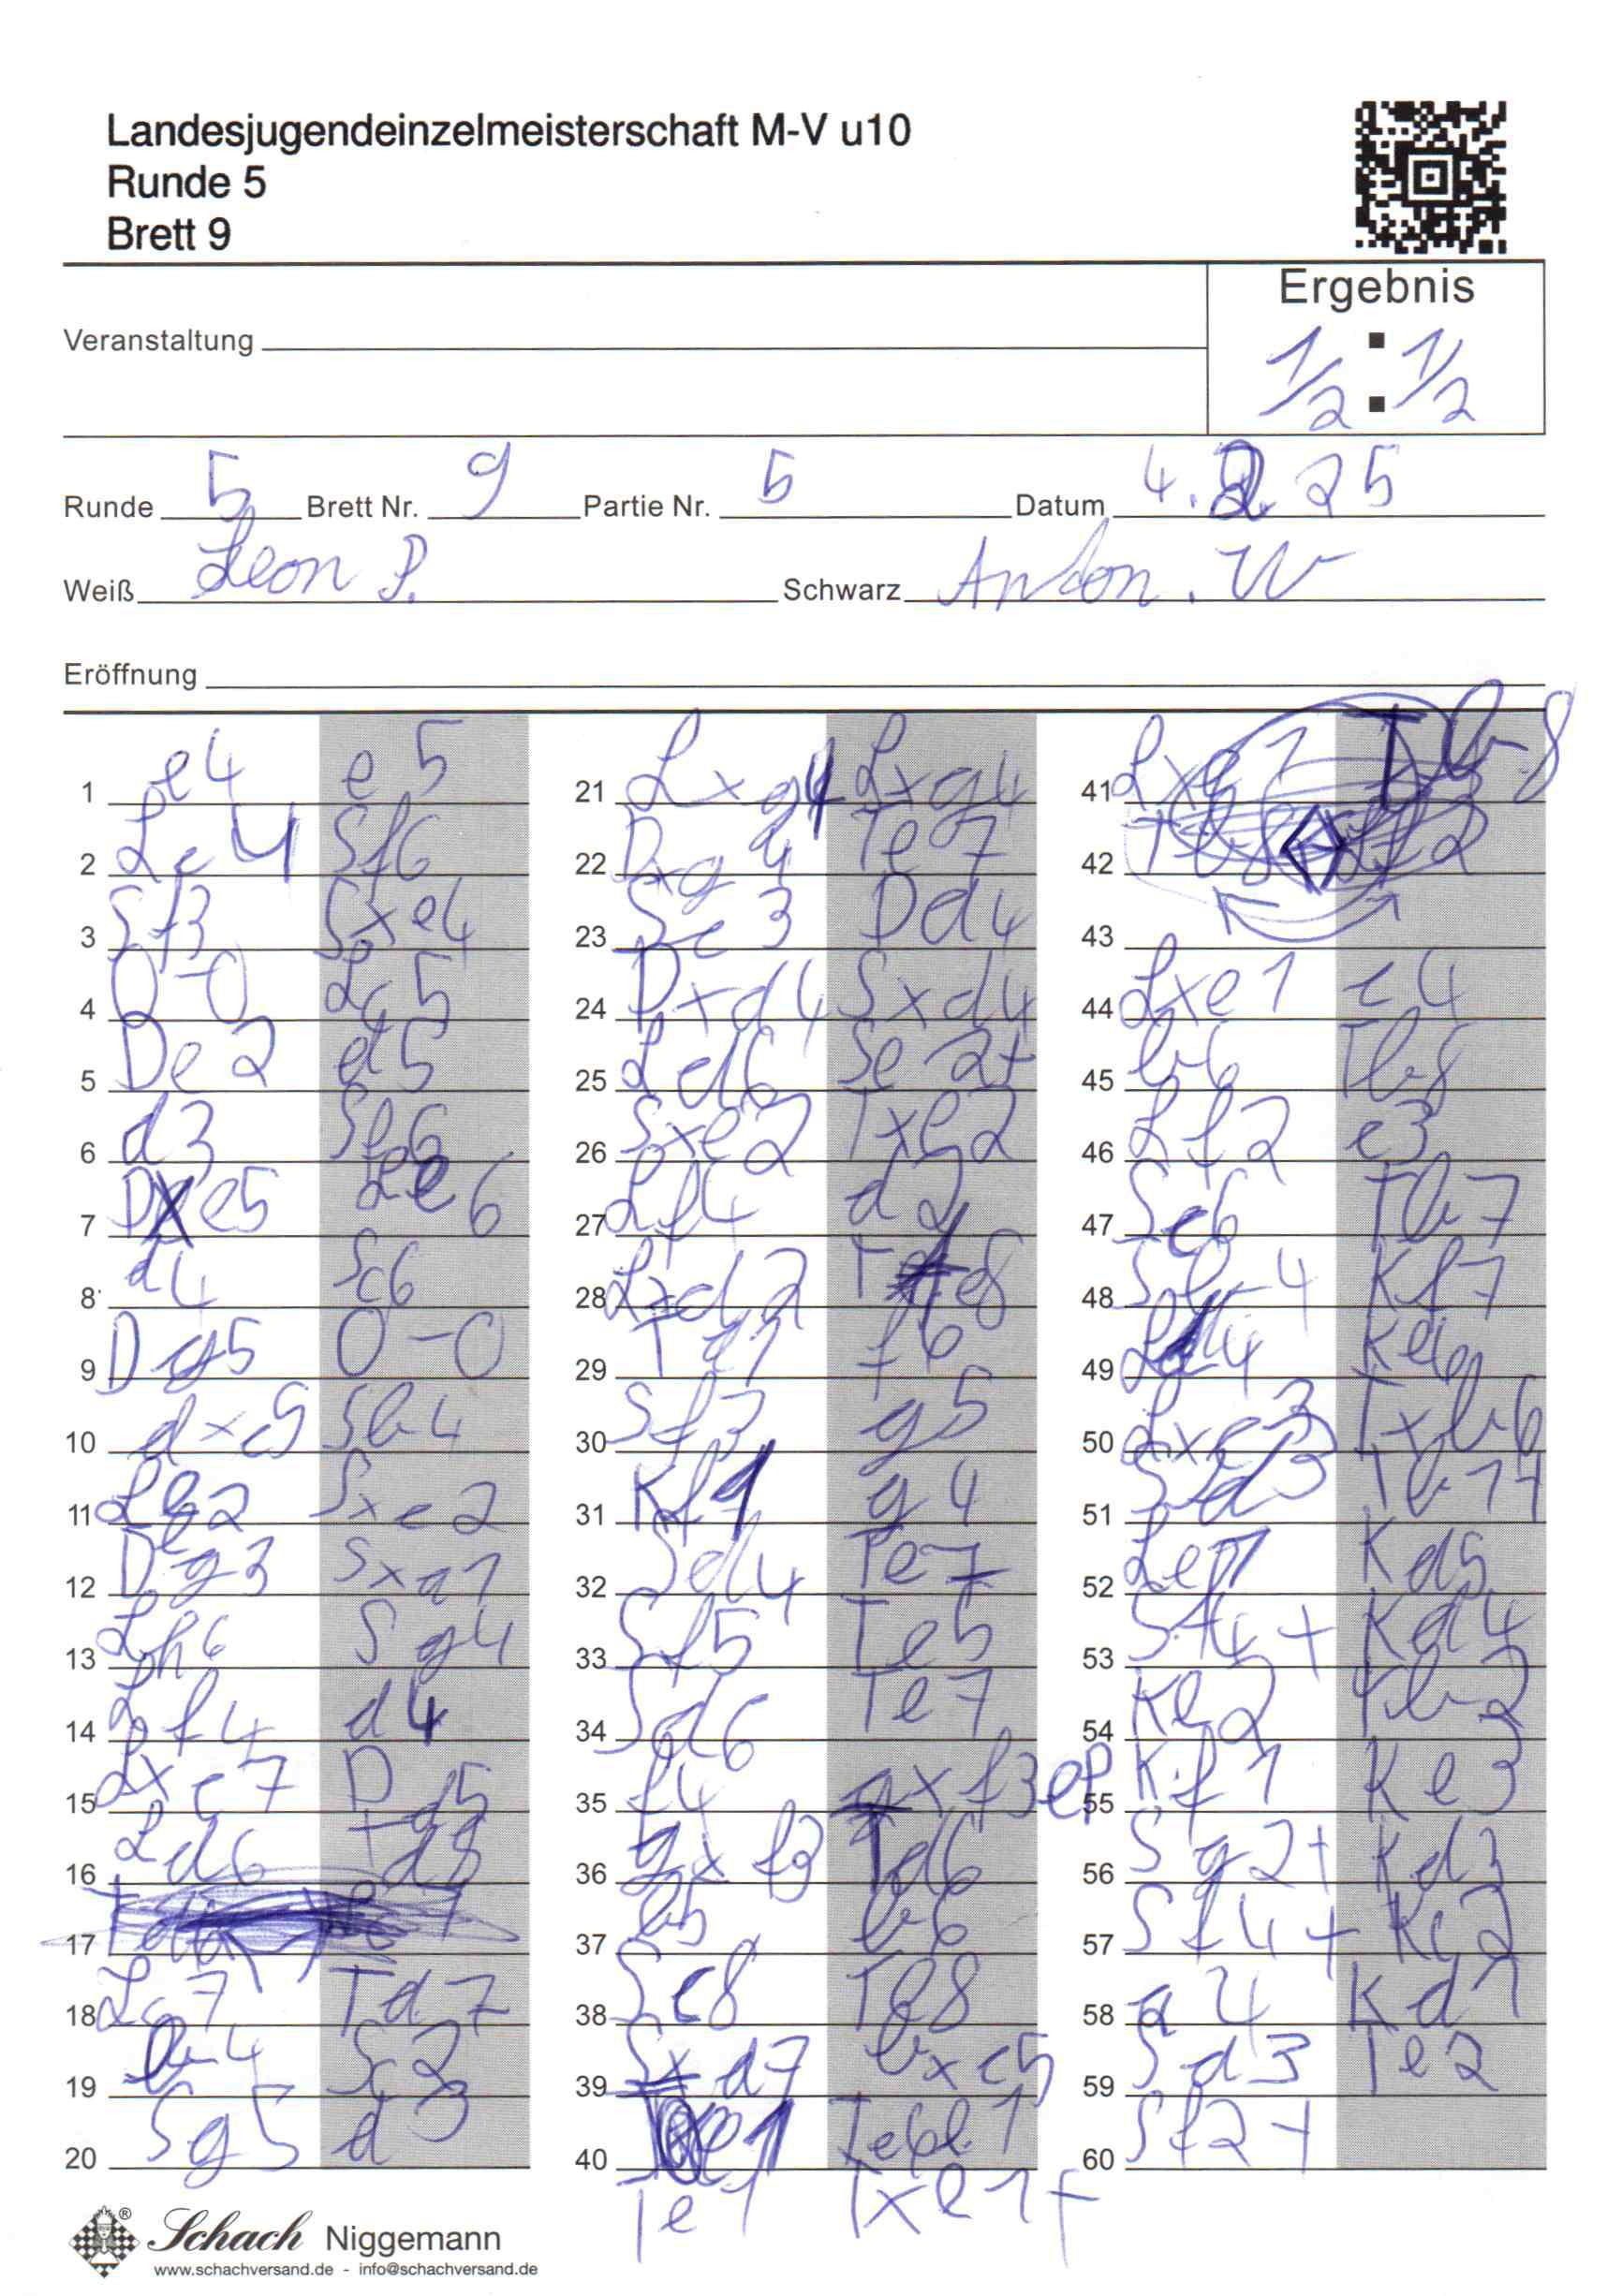 Landesjugendeinzelmeisterschaft M-V u10
Runde 5
Brett 9
Ergebnis
Veranstaltung
1/2 : 1/2
Runde 5 Brett Nr. 9 Partie Nr. 5 Datum 4.2.25
Weiß Leon P. Schwarz Anton. W
Eröffnung
1 e4 e5
2 Lc4 Sf6
3 Sf3 Sxe4
4 0-0 Lc5
5 De2 d5
6 d3 Sf6
7 Dxe5 Le6
8 d4 Sc6
9 Dg5 0-0
10 dxc5 Sb4
11 Le2 Sxc2
12 Dg3 Sxa1
13 Lh6 Sg4
14 Lf4 d4
15 Lxc7 Dd5
16 Ld6 Td8
17
18 Lc7 Td7
19 b4 Sc2
20 Sg5 d3
21 Lxg4 Lxg4
22 Dxg4 Te7
23 Sc3 Dd4
24 Dxd4 Sxd4
25 Ld6 Se2+
26 Sxe2 Txe2
27 Lf4 d2
28 Lxd2 Te8
29 Td1 f6
30 Sf3 g5
31 Kf1 g4
32 Sd4 Te7
33 Sf5 Te5
34 Sd6 Te7
35 f4 gxf3ep
36 gxf3 Td6
37 b5 b6
38 Sc8 Te8
39 Sxd7 bxc5
40
Te1 Txe1+
41 Lxe1 Tb8
42
43
44 Lxe1 c4
45 b6 Tb8
46 Lf2 c3
47 Sc6 Tb7
48 Sb4 Kf7
49 Ld4 Ke6
50 Lxc3 Txb6
51 Sd3 Tb1+
52 Le1 Kd5
53 Sf4+ Kd4
54 Ke2 Tb2
55 Kf1 Ke3
56 Sg2+ Kd3
57 Sf4+ Kc2
58 a4 Kd1
59 Sd3 Te2
60 Sf2+
Schach Niggemann
www.schachversand.de - info@schachversand.de